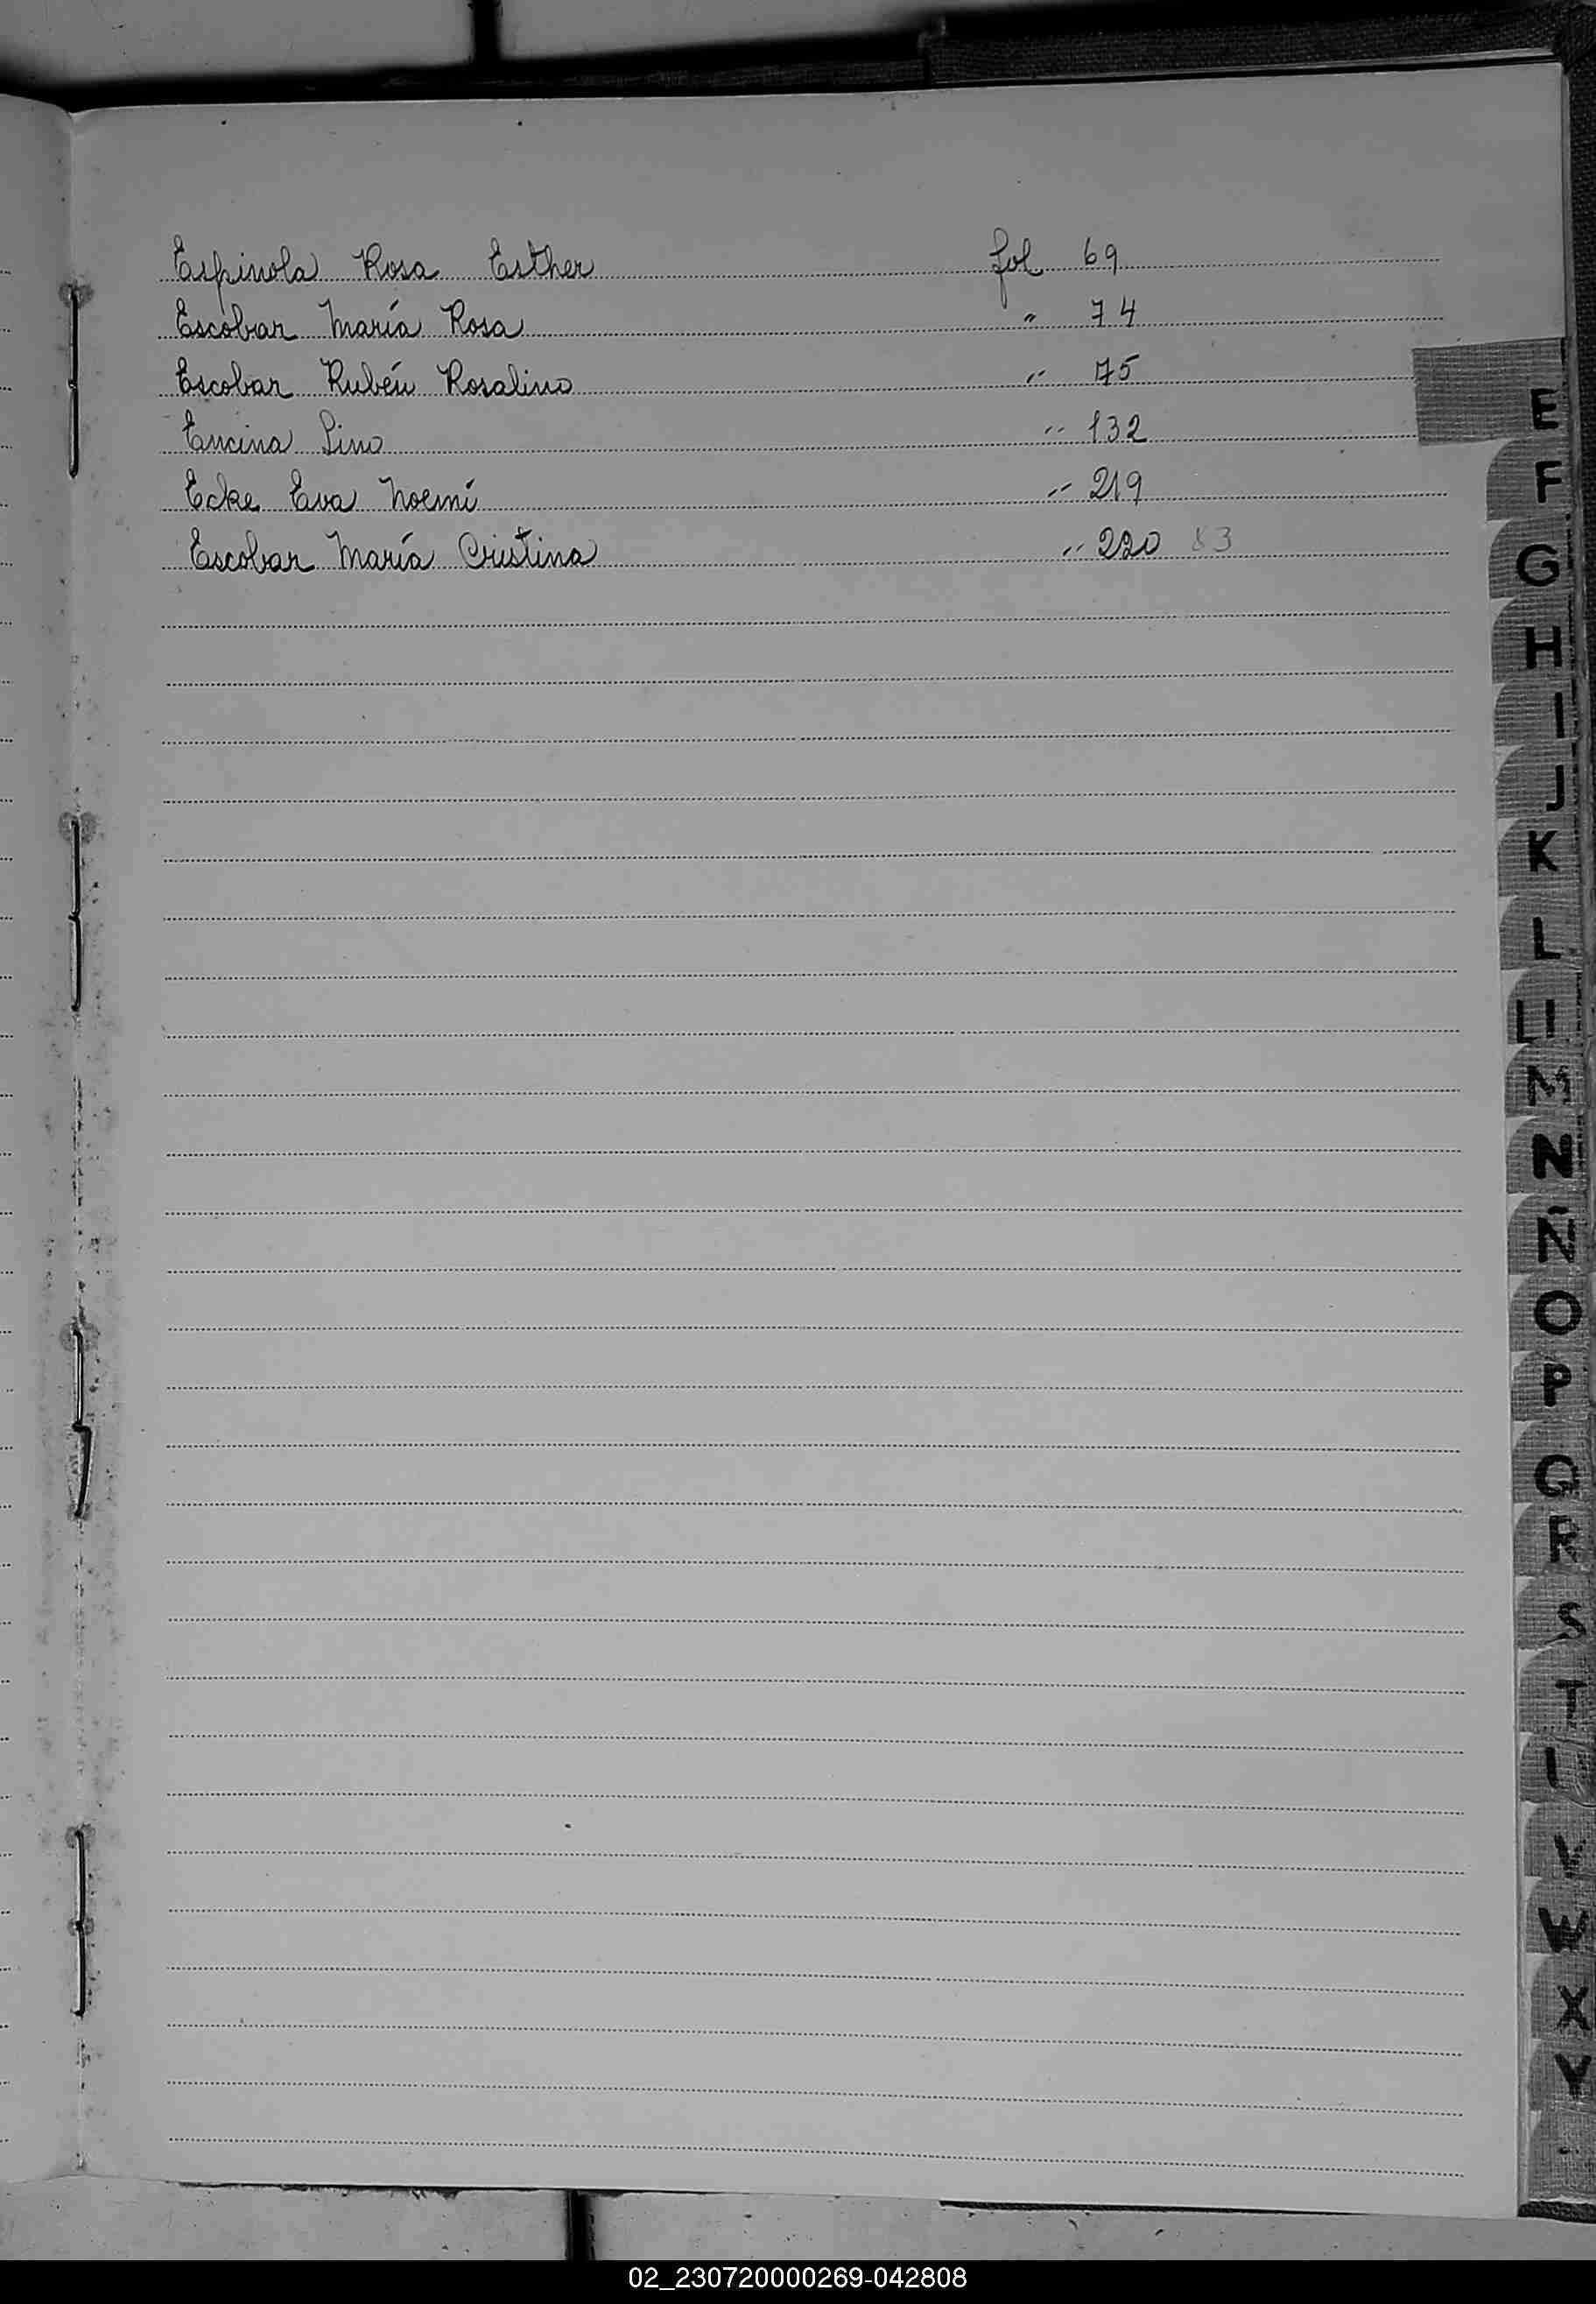 Espinola Rosa Esther fol 69
Escobar María Rosa " 74
Escobar Rubén Rosalino " 75
Encina Lino " 132
Ecke Eva Noemí " 219
Escobar María Cristina " 220 83
E
F
G
H
I
J
K
L
Ll
M
N
Ñ
O
P
Q
R
S
T
V
W
X
Y
02_230720000269-042808